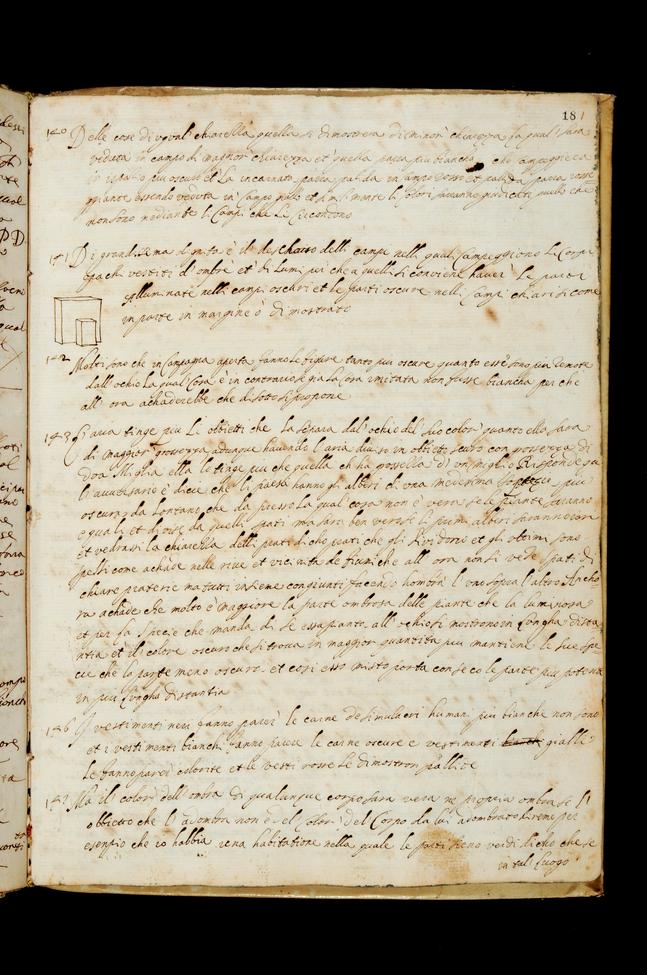 181
140 Delle cose di ugual chiarezza quella si dimostera di minor chiarezza la qual sara
veduta in campo di magior chiarezza et quella parra piu biancha che campegiera
in ispatio piu oscuro et La incarnata parra palida in campo rosso et palida parra rossegiante
essendo veduta in campo giallo et simil mente li colori saranno giudicati quello che
non sono mediante li Campi che Li Circondono
141 Di grandissima dignita è il discharso delli campi nelli quali Campeggiono Li Corpi
opachi vestiti d'ombre et di Lumi per che a quelli si conviene haver Le parti
alluminate nelli campi oscuri et le parti oscure nelli Campi chiari si come
in parte in margine è dimostrato
142 Molti sono che in Campagna aperta fanno Le figure tanto piu oscure quanto esse sono piu remote
dall'ochio La qual Cosa è in contrario se gia La Cosa imitata non fusse biancha per che
all'ora achaderebbe che di sotto si propone
143 L'aria tinge piu Li obbietti che La separa dal'ochio del suo color quanto ella sara
di maggior grossezza adunque havendo l'aria diviso un obbietto scuro con grossezza di
doa Miglia ella lo tinge piu che quella ch ha grossezza di un miglio Risponde qui
l'aversario è dice che li paesi hanno gli alberi di una medesima spetie piu
oscura da Lontano che da presso La qual cosa non è vera se le piante saranno
equali et divise da equali spati ma sara ben vero se li primi alberi saranno rari
et vedrassi la chiarezza delli prati di cho
spessi come achade nelle rive et vicinità de fiumi che all'ora non si vede spati di
chiare praterie ma tutti insieme congiunti facendo hombra l'uno sopra l'altro Ancho
ra achade che molto è maggiore La parte ombrosa delle piante che la luminosa
et per la spetie che manda di se essa pianta all'ochio si mostrono in Longha dista
ntia et il colore oscuro che si trova in maggior quantita piu mantiene le sue spe
cie che la parte meno oscura et cosi esso misto porta con seco le parte piu potente
in piu Longha distantia
146 I vestimenti neri fanno parer le carne de simulacri humani piu bianche non sono
et i vestimenti bianchi fanno parere le carne oscure e vestimenti gialli
Le fanno parer colorite et le vesti rosse le dimostron pallide
147 Mai il colore dell'ombra di qualunque corpo sara vera ne propria ombra se l'
obbietto che l'adombra non è del colore del Corpo da lui adombrato Diremo per
esempio che io habbia una habitatione nella quale le parti sieno verdi dicho che se
in tal luogo